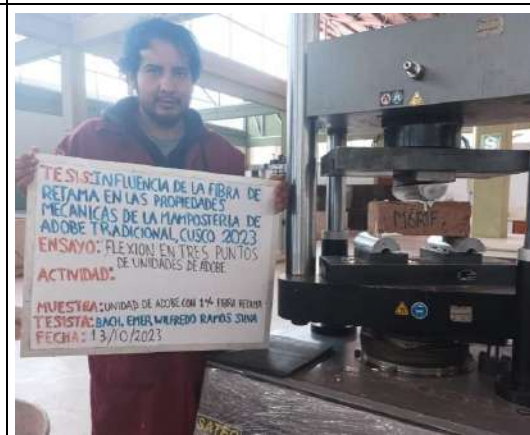 TESIS: INFLUENCIA DE LA FIBRA DE
RETAMA EN LAS PROPIEDADES
MECANICAS DE LA MAMPOSTERIA DE
ADOBE TRADICIONAL, CUSCO 2023
ENSAYO: FLEXION EN TRES PUNTOS
DE UNIDADES DE ADOBE
ACTIVIDAD:
MUESTRA: UNIDAD DE ADOBE CON 1% FIBRA RETAMA
TESISTA: BACH. EMER WILFREDO RAMOS SUNA
FECHA: 13/10/2023
SATEC